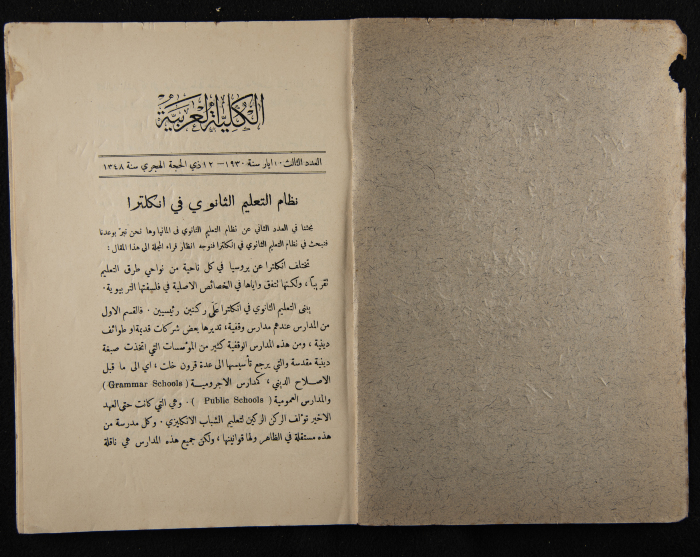 الكلية العربية
العدد الثالث ١٠ ايار سنة ١٩٣٠ — ١٢ ذي الحجة الهجري سنة ١٣٤٨
نظام التعليم الثانوي في انكلترا
بحثنا في العدد الثاني عن نظام التعليم الثانوي في المانيا وها نحن نبرّ بوعدنا
فنبحث في نظام التعليم الثانوي في انكلترا فنوجه انظار قراء المجلة الى هذا المقال :
تختلف انكلترا عن بروسيا في كل ناحية من نواحي طرق التعليم
تقريباً ، ولكنها تتفق واياها في الخصائص الاصلية في فلسفتها التربيوية .
يبنى التعليم الثانوي في انكلترا على ركنين رئيسيين . فالقسم الاول
من المدارس عندهم مدارس وقفية ، تديرها بعض شركات قديمة او طوائف
دينية ، ومن هذه المدارس الوقفية كثير من المؤسسات التي اتخذت صبغة
دينية مقدسة والتي يرجع تأسيسها الى عدة قرون خلت ، اي الى ما قبل
الاصلاح الديني ، كمدارس الاجرومية ( Grammar Schools )
والمدارس العمومية ( Public Schools ) . وهي التي كانت حتى العهد
الاخير تؤلف الركن الركين لتعليم الشباب الانكليزي . وكل مدرسة من
هذه مستقلة في الظاهر ولها قوانينها ، ولكن جميع هذه المدارس هي ناقلة